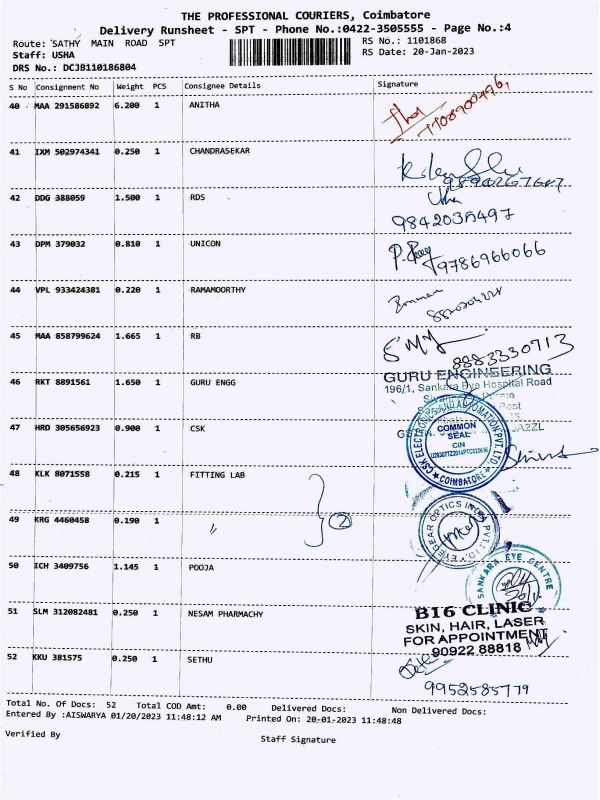 THE PROFESSIONAL COURIERS, Coimbatore
Delivery Runsheet - SPT - Phone No.:0422-3505555 - Page No.:4
Route: SATHY MAIN ROAD SPT
RS No.: 1101868
Staff: USHA
RS Date: 20-Jan-2023
DRS No.: DCJB110186804
S No Consignment No Weight PCS Consignee Details Signature
40 MAA 291586892 6.200 1 ANITHA
41 IXM 502974341 0.250 1 CHANDRASEKAR
42 DDG 388059 1.500 1 RDS
43 DPM 379032 0.810 1 UNICON
9786966066
44 VPL 933424381 0.220 1 RAMAMOORTHY
45 MAA 858799624 1.665 1 RB
8883330713
46 RKT 8891561 1.650 1 GURU ENGG
GURU ENGINEERING
196/1, Sankara Eye Hospital Road
47 HRD 305656923 0.900 1 CSK
CSK ELECTRONIC AND AUTOMATION PVT. LTD
COMMON
SEAL
CIN
COIMBATORE
48 KLK 8071558 0.215 1 FITTING LAB
2
49 KRG 4460458 0.190 1 "
50 ICH 3409756 1.145 1 POOJA
SANKARA EYE CENTRE
51 SLM 312082481 0.250 1 NESAM PHARMACHY
B16 CLINIC
SKIN, HAIR, LASER
FOR APPOINTMENT
90922 88818
52 KKU 381575 0.250 1 SETHU
9952585779
Total No. Of Docs: 52 Total COD Amt: 0.00 Delivered Docs: Non Delivered Docs:
Entered By :AISWARYA 01/20/2023 11:48:12 AM Printed On: 20-01-2023 11:48:48
Verified By
Staff Signature